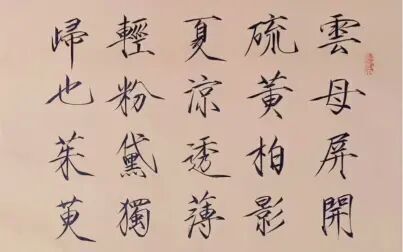 雲母屏開
硫黃柏影
夏涼透薄
輕粉黛獨
歸也茱萸